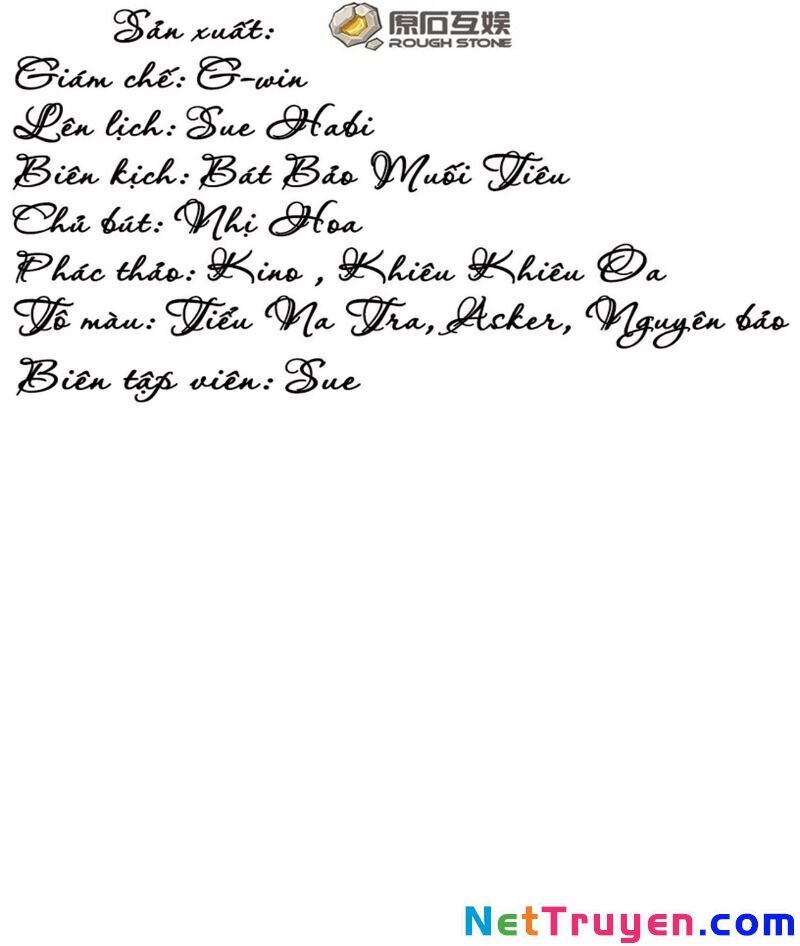 Sản xuất: 原石互娱
ROUGH STONE
Giám chế: G-win
Lên lịch: Sue Habi
Biên kịch: Bát Bảo Muối Tiêu
Chủ bút: Nhị Hoa
Phác thảo: Kino , Khiêu Khiêu Oa
Tô màu: Tiểu Na Tra, Asker, Nguyên bảo
Biên tập viên: Sue
NetTruyen.com